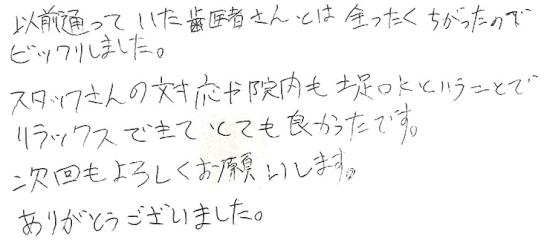 以前通っていた歯医者さんとは全ったくちがったので
ビックリしました。
スタッフさんの対応や院内も土足OKということで
リラックスできてとても良かったです。
次回もよろしくお願いします。
ありがとうございました。